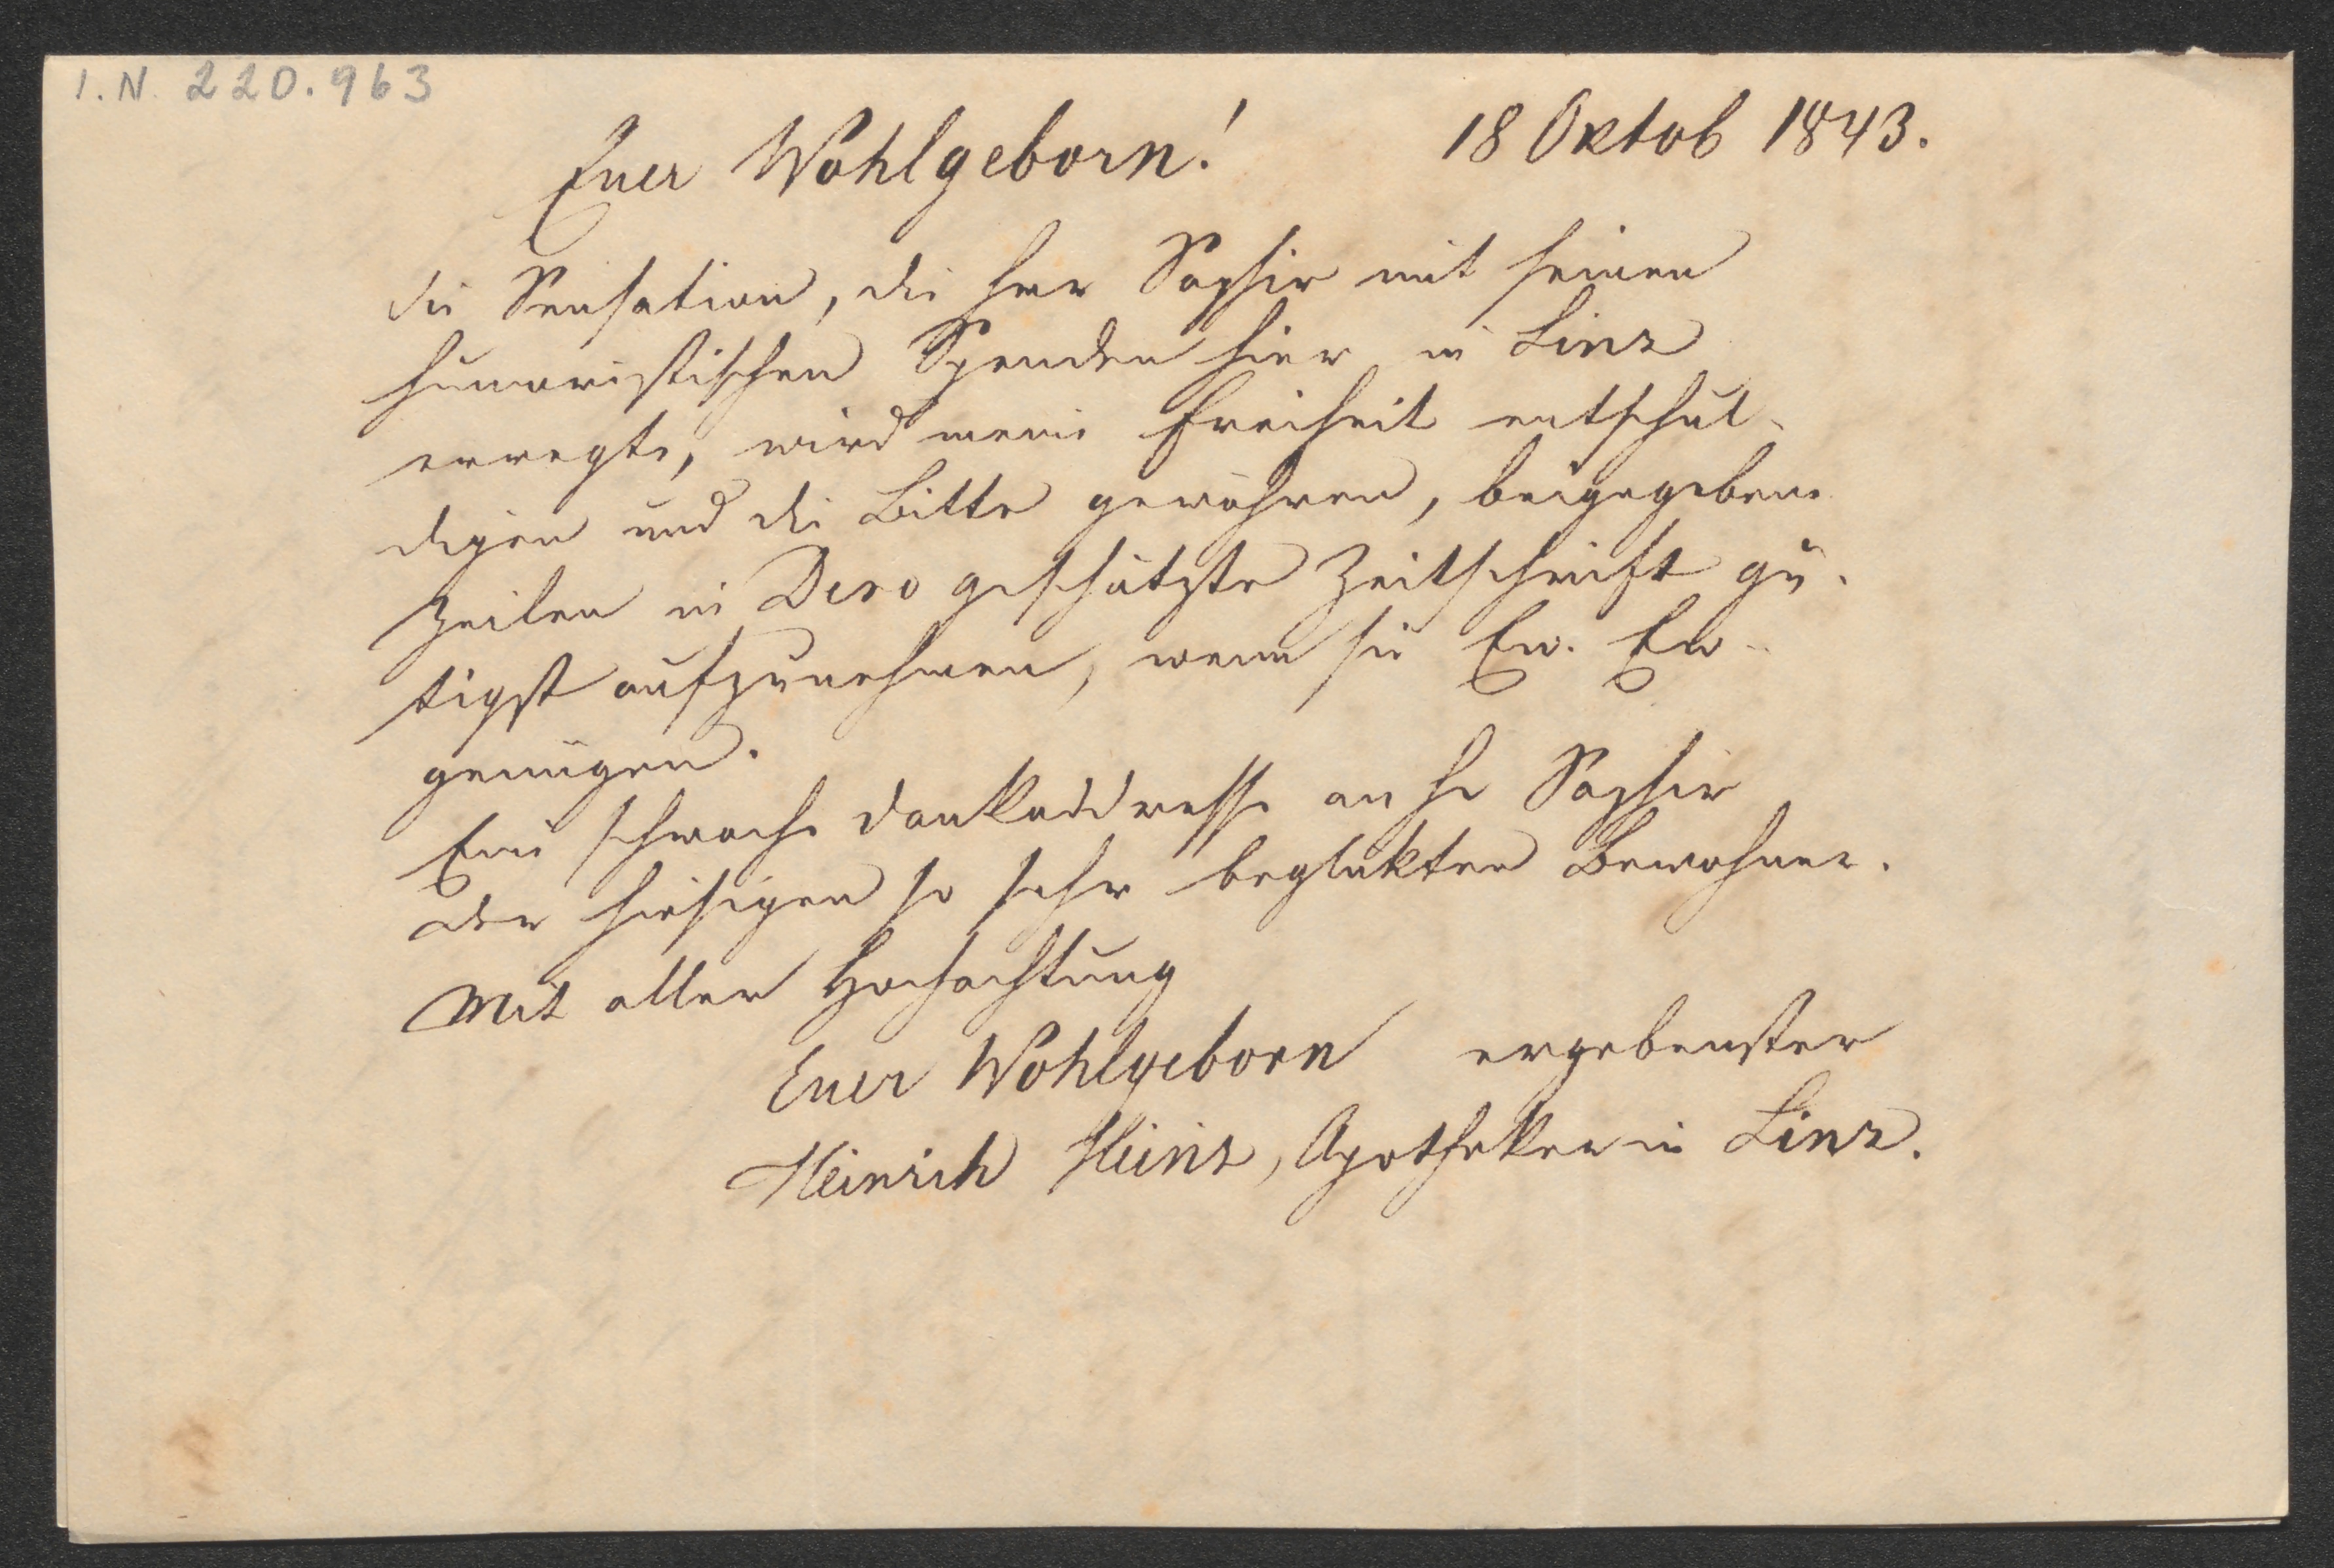 I.N. 220.963
Euer Wohlgeborn! 18 Oktob 1843.
die Sensation, die Herr Saphir mit seinen
humoristischen Spenden hier in Linz
erregte, wird meine Freiheit entschul-
digen und die Bitte gewähren, beigegebene
Zeilen in Dero geschätzte Zeitschrift gü-
tigst aufzunehmen, wenn sie Eu. Eu-
genügen.
Eine schwache Dankaddresse an H Saphir
der hiesigen so sehr beglükten Bewohner.
Mit aller Hochachtung
Euer Wohlgeborn ergebenster
Heinrich Heinz, Apotheker in Linz.